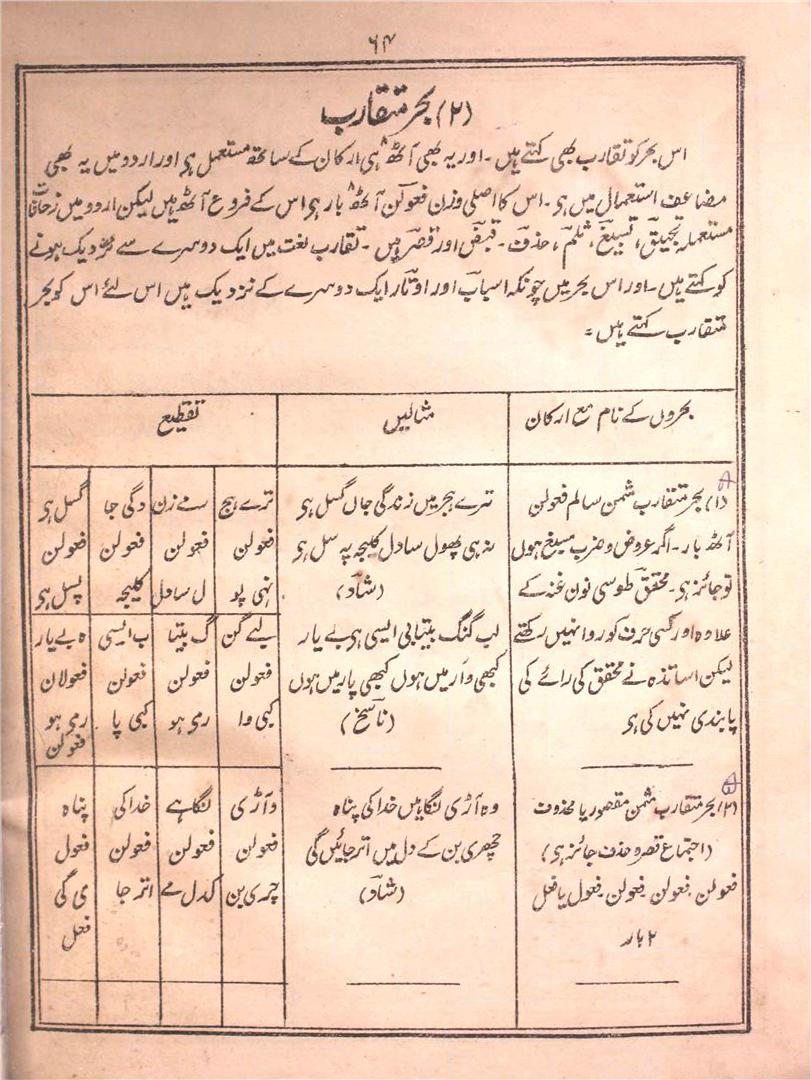 ۶۴
(۲) بحر متقارب
اس بحر کو تقارب بھی کہتے ہیں۔ اور یہ بھی آٹھ ہی ارکان کے ساتھ مستعمل ہی اور اردو میں یہ بھی
مضاعف استعمال میں ہی۔ اس کا اصلی وزن فعولن آٹھ ۸ بار ہی اس کے فروع آٹھ ہیں لیکن اردو میں زحافات
مستعملہ تحنیق، تسبیغ، ثلم، حذف۔ قبض اور قصر ہیں۔ تقارب لغت میں ایک دوسرے سے نزدیک ہونے
کو کہتے ہیں۔ اور اس بحر میں چونکہ اسباب اور اوتار ایک دوسرے کے نزدیک ہیں اس لئے اس کو بحر
متقارب کہتے ہیں۔
بحروں کے نام مع ارکان | مثالیں | تقطیع
(۱) بحر متقارب مثمن سالم فعولن
آٹھ بار۔ اگر عروض و ضرب مسبغ ہوں
تو جائز ہی۔ محقق طوسی نون غنہ کے
علاوہ اور کسی حرف کو روا نہیں رکھتے
لیکن اساتذہ نے محقق کی رائے کی
پابندی نہیں کی ہی
ترے ہجر میں زندگی جاں گسل ہی
نہ ہی پھول سا دل کلیجہ پہ سل ہی
(شاد)
لب گنگ بیتابی ایسی ہی بے یار
کبھی وار میں ہوں کبھی پار میں ہوں
(ناسخ)
ترے ہج | رمے زن | دگی جا | گسل ہی
فعولن | فعولن | فعولن | فعولن
نہی پو | ل سا دل | کلیجہ | پسل ہی
لبے گن | گ بیتا | ب ایسی | ہ بے یار
فعولن | فعولن | فعولن | فعولان
کبی وا | رمی ہو | کبی پا | رمی ہو
فعولن
(۲) بحر متقارب مثمن مقصور یا محذوف
(اجتماع قصر و حذف جائز ہی)
فعولن۔ فعولن۔ فعولن۔ فعول یا فعل
۲ بار
وہ آڑی نگاہیں خدا کی پناہ
چھری بن کے دل میں اتر جائیں گی
(شاد)
وآڑی | نگاہے | خدا کی | پناہ
فعولن | فعولن | فعولن | فعول
چری بن | کدل مے | اتر جا | می گی
فعل